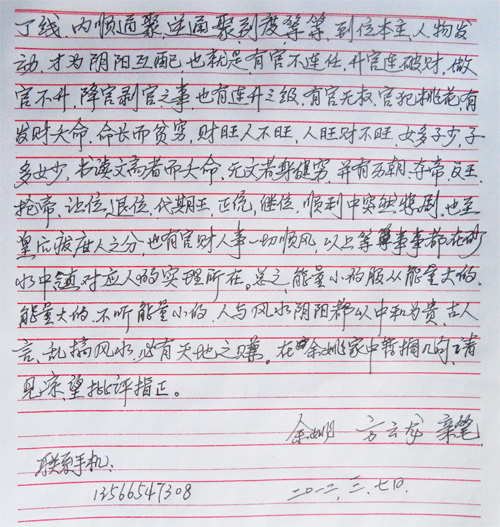 丁线,内顺通聚,逆涌聚到度等等,到位本主,人物发
动,才为阴阳互配,也就是,有官不连任,升官连破财,做
官不升,降官剥官之事,也有连升之级,有官无权,官犯桃花,有
发财夭命,命长而贫穷,财旺人不旺,人旺财不旺,女多子少,子
多女少,书读文高者而夭命,无文者健穷,并有立朝,夺帝,反王,
抢帝,让位,退位,代期王,正位,继位,顺利中突然悲剧,也至
皇后疲庶人之分,也有官财人事一切顺风,以上等等事事都在砂
水中镇对应人的实理所在。总之,能量小的服从能量大的,
能量大的,不听能量小的,人与风水阴阳都以中和为贵,古人
言,乱搞风水,必有天地之赚。在余姚家中暂搁几句,请
见凉,望批评指正。
余姚 方云龙 亲笔
联系手机:
13566547308 二〇一二,三,七日,